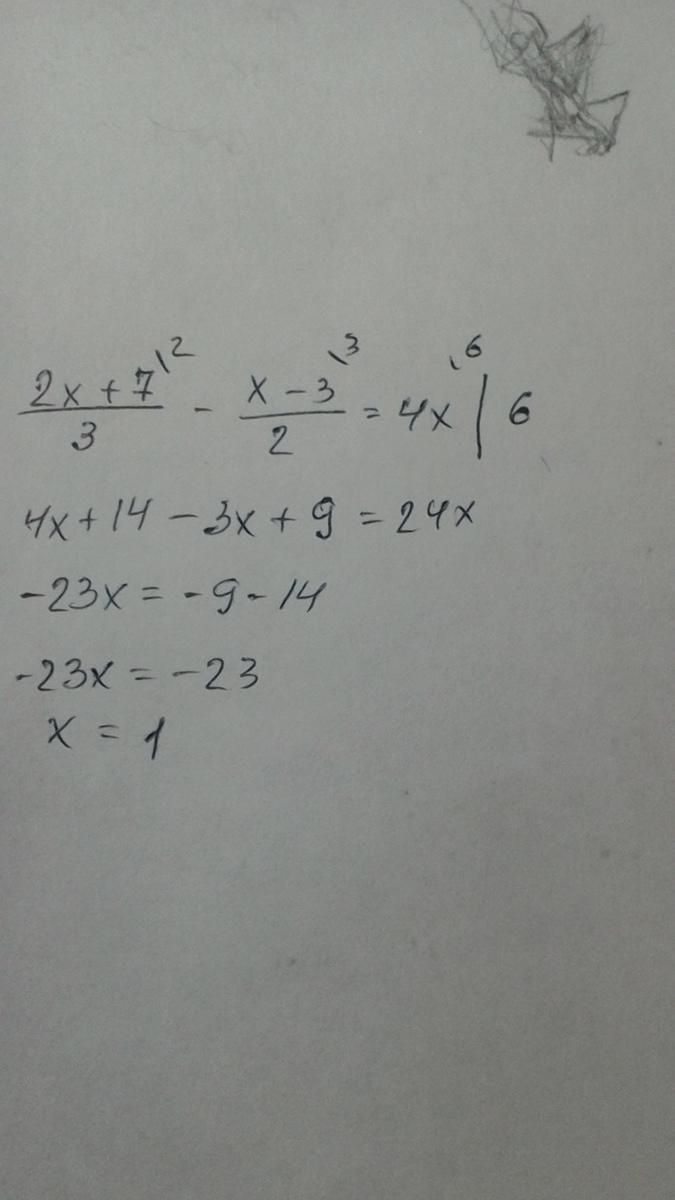 (2x + 7)/3 \2 - (x - 3)/2 \3 = 4x \6 | 6
4x + 14 - 3x + 9 = 24x
-23x = -9 - 14
-23x = -23
x = 1